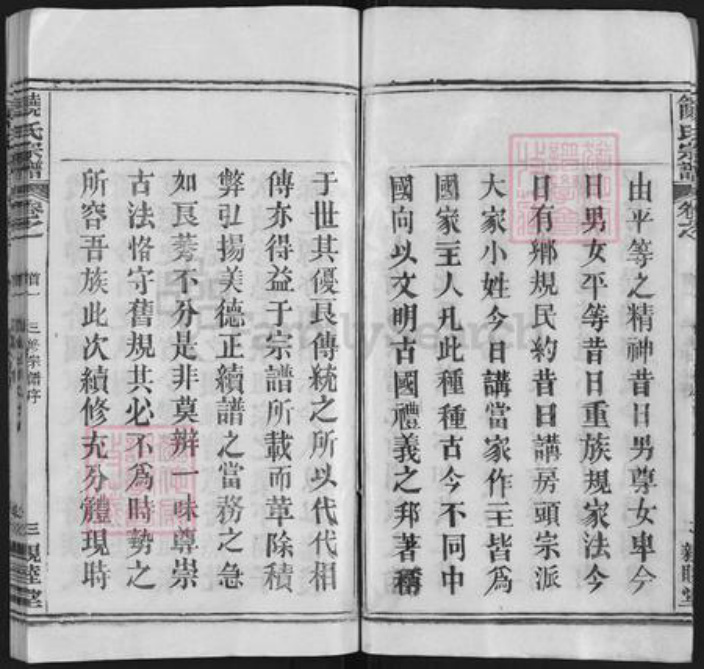 饒氏宗譜
由平等之精神昔日男尊女卑今
日男女平等昔日重族規家法今
日有鄉規民約昔日講房頭宗派
大家小姓今日講當家作主皆為
國家主人凡此種種古今不同中
國向以文明古國禮義之邦著稱
于世其優良傳統之所以代代相
傳亦得益于宗譜所載而革除積
弊弘揚美德正續譜之當務之急
如良莠不分是非莫辨一味尊崇
古法恪守舊規其必不為時勢之
所容吾族此次續修充分體現時
饒氏宗譜
卷之一
首一
三修宗譜序
三
親睦堂
FamilySearch